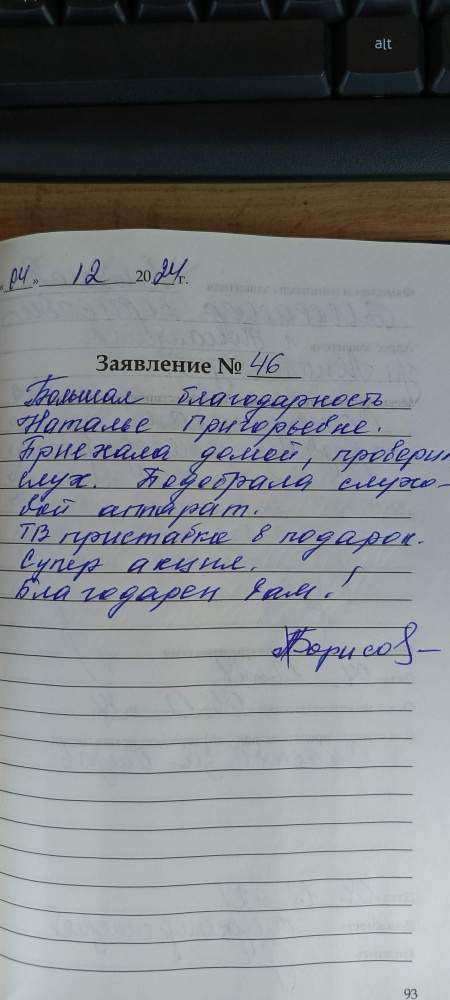 alt
«04» 12 2024г.
Заявление № 46
Большая благодарность
Наталье Григорьевне.
Приехала домой, проверил
слух. Подобрала слухо-
вой аппарат.
ТВ приставка в подарок.
Супер акция.
Благодарен Вам!
Борисов
93